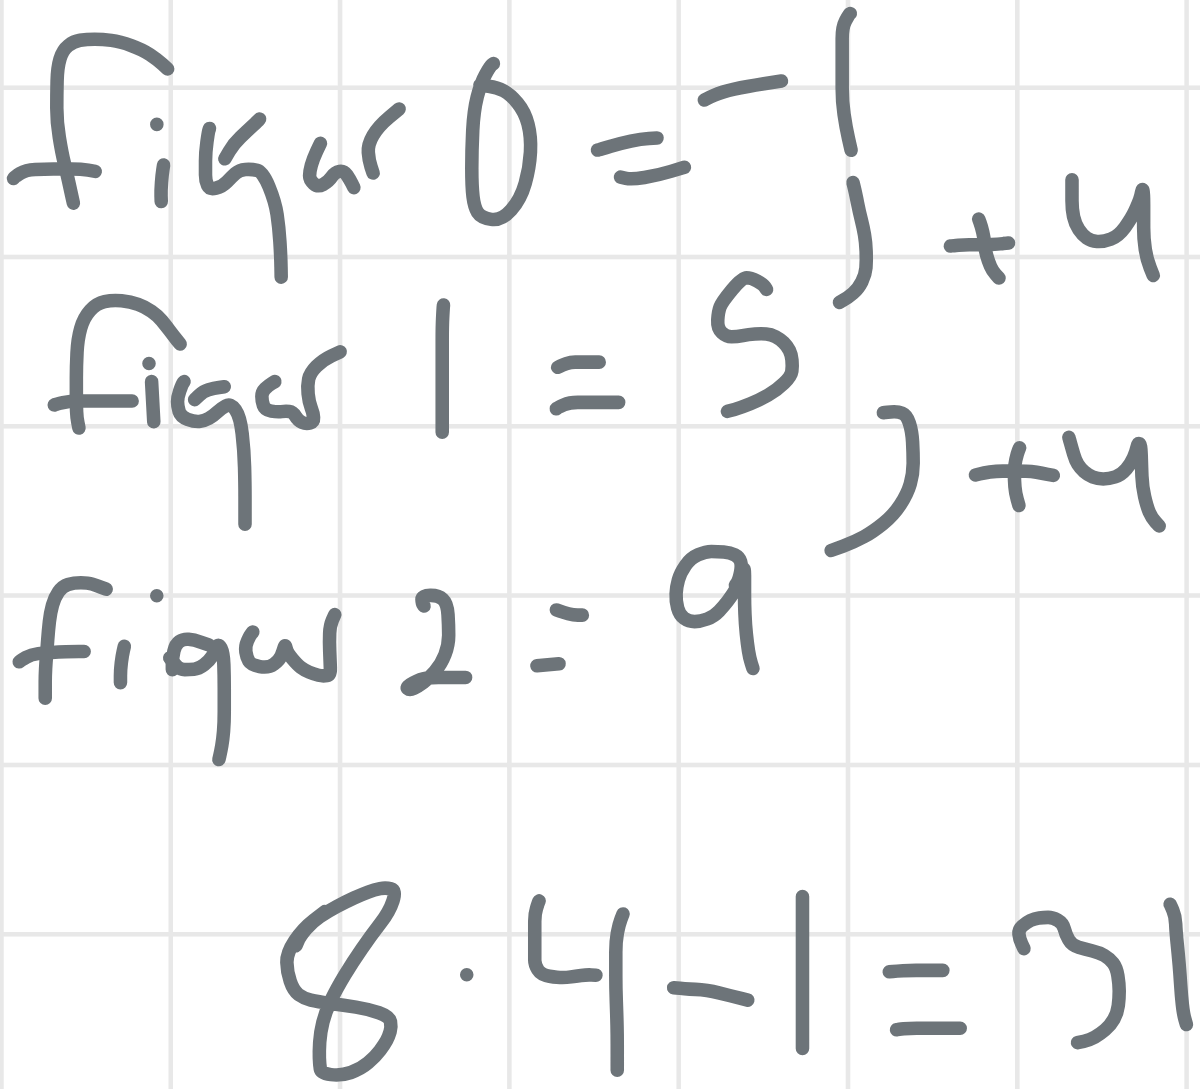 figur 0 = -1
) + 4
figur 1 = 5
) + 4
figur 2 = 9
8 · 4 - 1 = 31